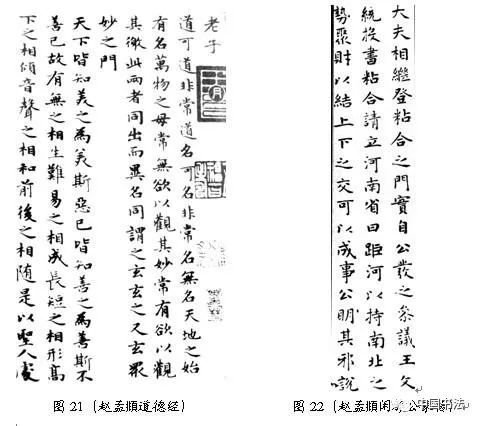 老子
道可道非常道名可名非常名無名天地之始
有名萬物之母常無欲以觀其妙常有欲以觀
其徼此兩者同出而異名同謂之玄玄之又玄眾
妙之門
天下皆知美之為美斯惡已皆知善之為善斯不
善已故有無之相生難易之相成長短之相形高
下之相傾音聲之相和前後之相隨是以聖人處
图 21（赵孟頫道德经）
大夫相繼登粘合之門實自公發之參議王文
統投書粘合請立河南省曰距河以持南北之
勢聚財以結上下之交可以成事公明其邪說
图 22（赵孟頫闲
中国书法